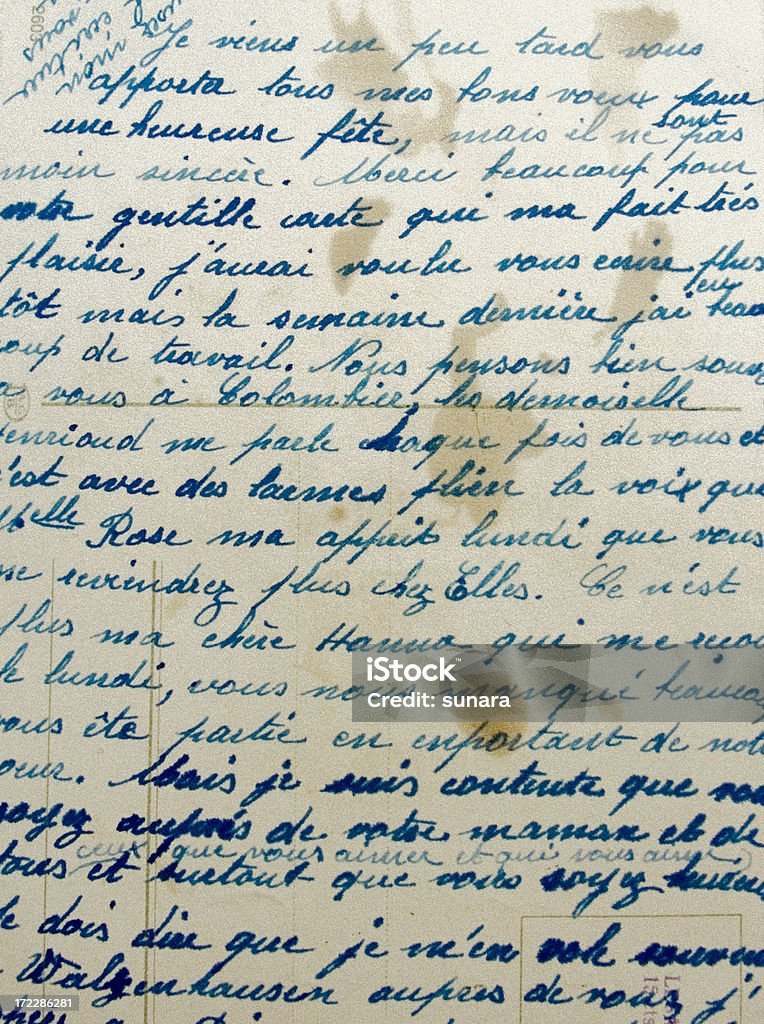 Je viens un peu tard vous
apporter tous mes bons voeux pour
une heureuse fête, mais il ne sont pas
moin sincère. Merci beaucoup pour
votre gentille carte qui ma fait très
plaisir, j'aurai voulu vous ecrire plus
tôt mais la semaine dernière j'ai eu beau
coup de travail. Nous pensons bien souv
a vous à Colombier, les demoiselle
enrioud me parle chaque fois de vous et
c'est avec des larmes plien la voix que
Melle Rose ma apprit lundi que vous
ne reviendrez plus chez Elles. Ce n'est
plus ma chère Hanna qui me
le lundi, vous manqué beauco
vous ête partie en enportant de not
oeur. Mais je suis contente que vous
soyez auprès de votre maman et de
ceux que vous aimer et qui vous aime)
tous et surtout que vous soyez
Je dois dire que je m'en
Walzenhausen aupres de vous j'
iStock
Credit: sunara
172286281